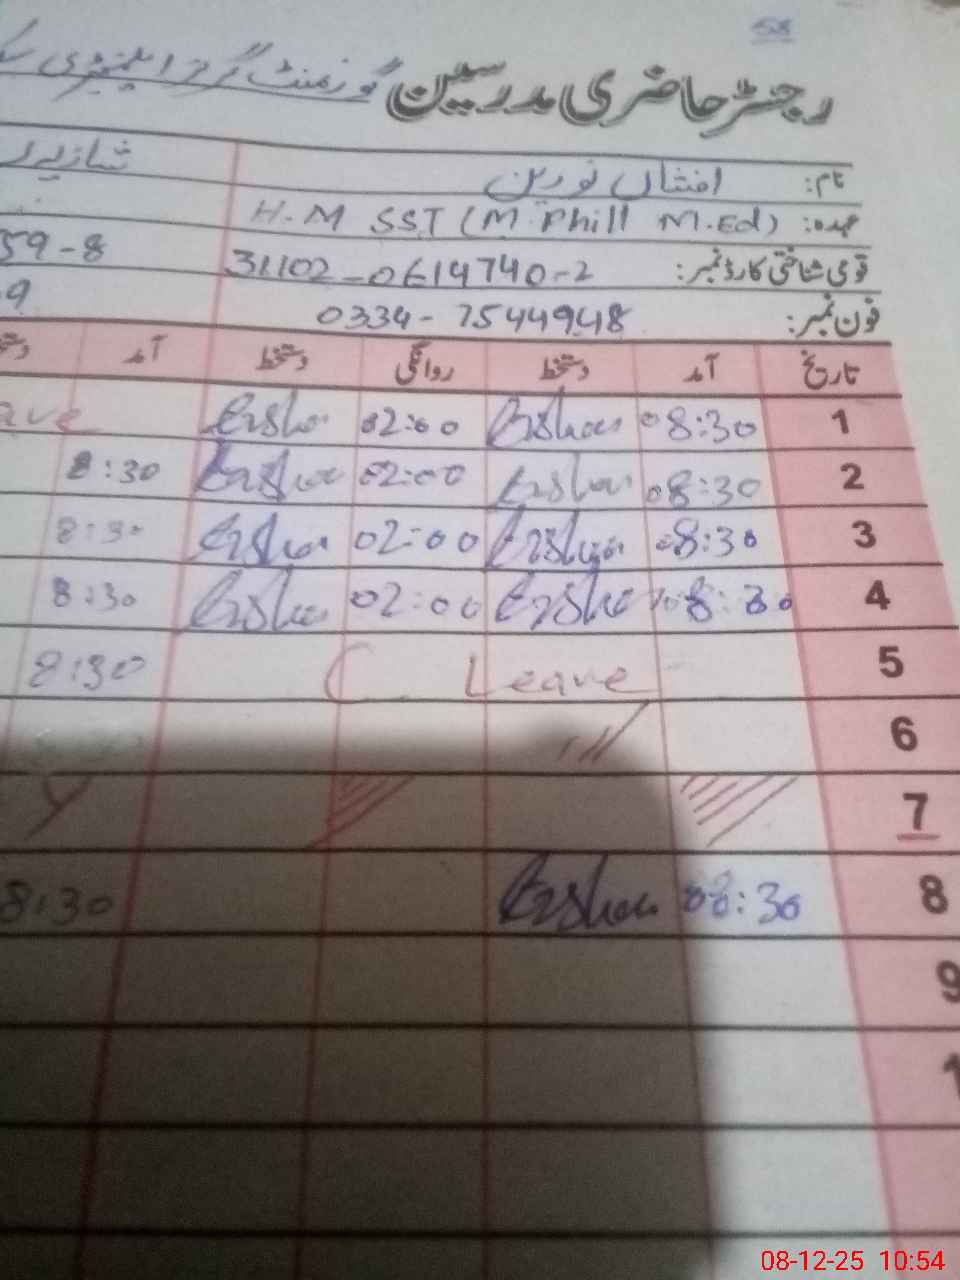 58
رجسٹر حاضری مدرسین گورنمنٹ گرلز ایلیمنٹری
نام: افشاں نورین
عہدہ: H.M SST (M.Phill M.Ed)
قومی شناختی کارڈ نمبر: 31102-0614740-2 59-8
فون نمبر: 0334-7544948 9
تاریخ آمد دستخط روانگی دستخط آمد
1 08:30 02:00
2 08:30 02:00 8:30
3 08:30 02:00 8:30
4 08:30 02:00 8:30
5 C Leave 8:30
6
7
8 08:30 8:30
9
1
08-12-25 10:54